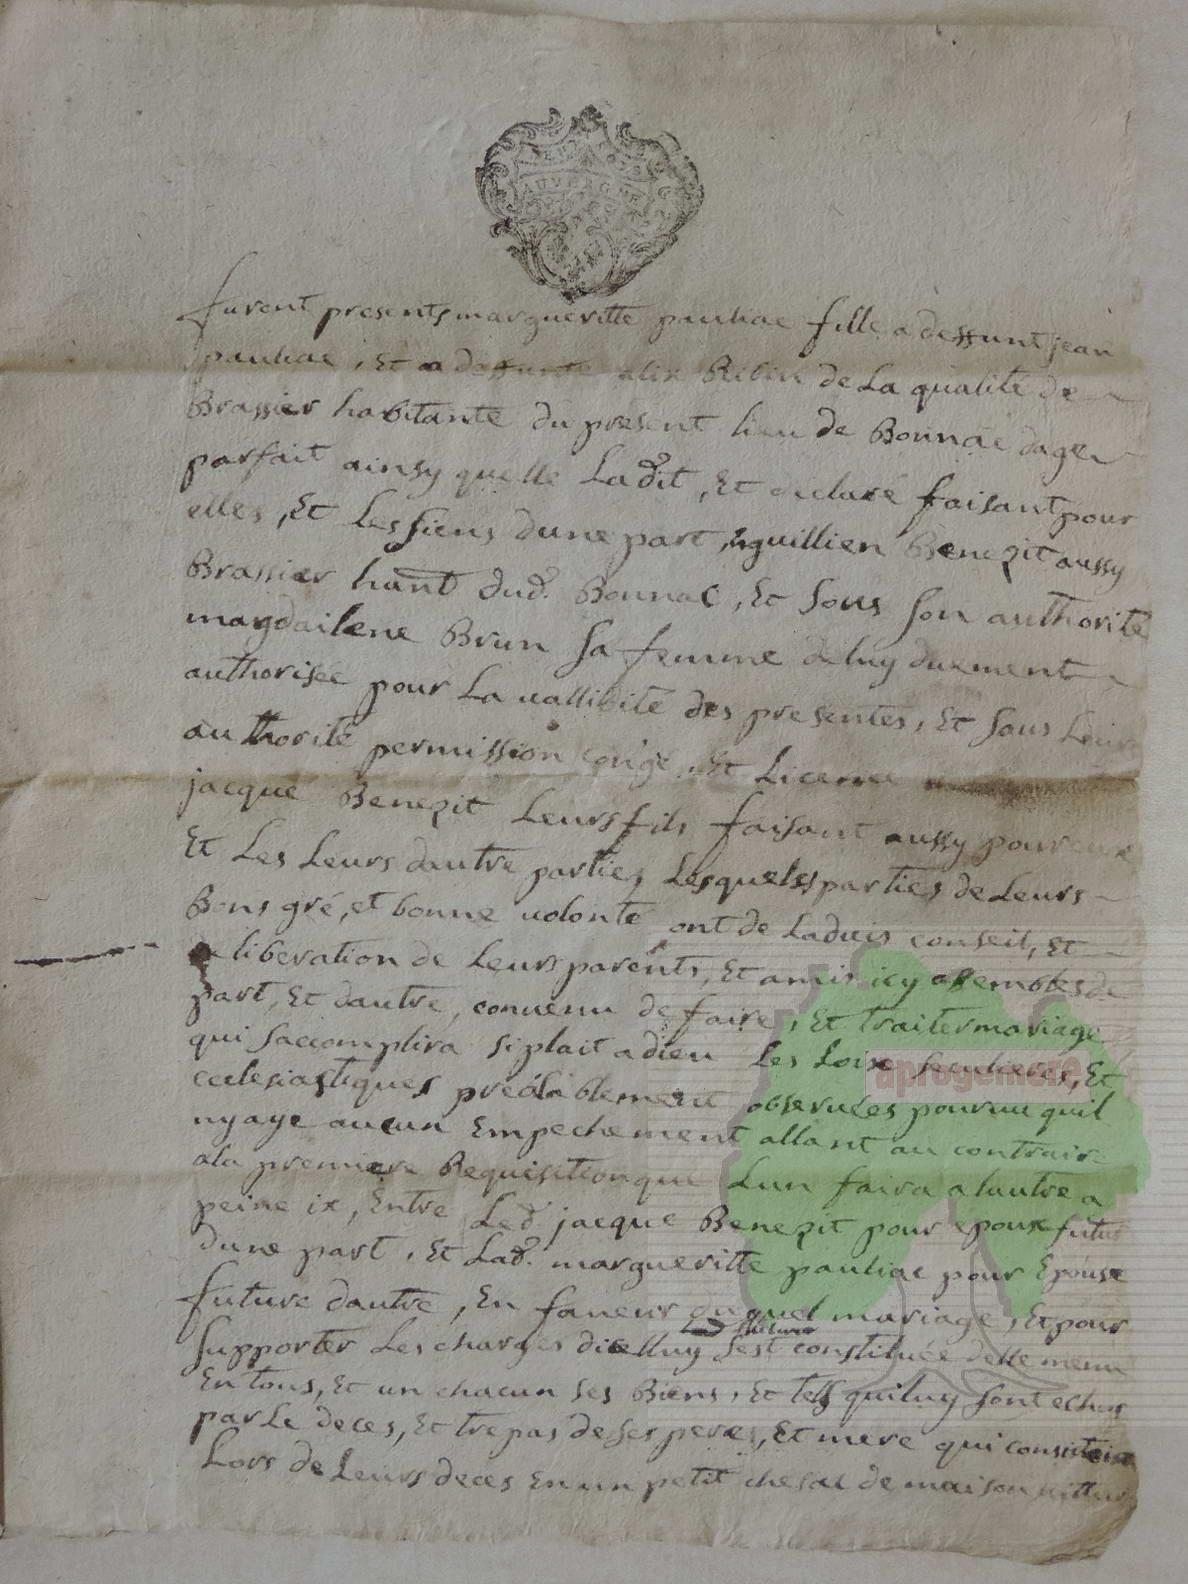 AUVERGNE
furent presents margueritte pauliac fille a deffunt jean
pauliac, Et a deffunte alix Ribin de La qualité de
Brassier habitante du present lieu de Bonnac dage
parfait ainsy quelle Ladit, Et declaré faisant pour
elles, Et Les siens dune part, guillien Benezit aussy
Brassier hant dud. Bonnac, Et sous son authorité
magdailene Brun sa femme de luy duement
authorisée pour La vallidité des presentes, Et sous Leur
authorité permission congé, Et Licence
jacque Benezit Leurs fils faisant aussy pour eux
Et Les Leurs dautre parties, Lesquelles parties de Leurs
Bons gré, et bonne volonté ont de Ladvis conseil, Et
deliberation de Leurs parents, Et amis icy assemblés de
part, Et dautre, convenu de faire, Et traiter mariage
qui saccomplira siplait a dieu Les Loix seculieres, Et
ecclesiastiques préalablement observées pourvu quil
ny aye aucun Empechement allant au contraire
ala premiere Requisition que Lun faira a lautre a
peine ix, Entre Led. jacque Benezit pour epoux futur
dune part, Et Lad. margueritte pauliac pour Epouse
future dautre, En faveur duquel mariage, Et pour
Lad future
supporter Les charges dicelluy sest constituée delle meme
En tous, Et un chacun ses Biens, Et tels quiluy sont echus
par Le deces, Et trepas de ses peres, Et mere qui consistoit
Lors de Leurs deces En un petit chesal de maison
aprogemere